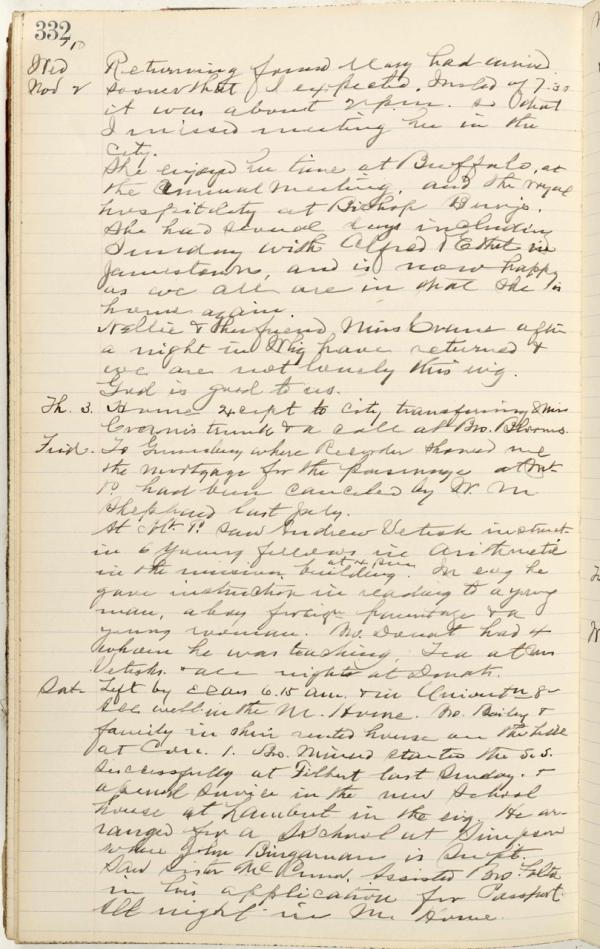 332
10
Wed Returning found Mary had arrived
Nov 2 sooner that I expected. Insted of 7.30
it was about 2 p.m. so that
I missed meeting her in the
city.
She enjoyed her time at Buffalo, at
the Annual Meeting, and the royal
hospitality at Bishop
She had several days including
Sunday with Alfred & in
Jamestown, and is now happy
as we all are in that she is
home again.
Nellie & her friend Miss Crane after
a night in have returned &
we are not lonely this evg.
God is good to us.
Th. 3. Home except to city transfering Miss
trunk & a call at Bro.
Frid. To where Recorder showed me
the mortgage for the parsonage at Mt
P. had been canceled by W. M
Shephard last July.
At Mt P. saw Andrew instruct-
in 6 young fellows in Arithmetic
in the mission building. at 4 p.m. In evg he
gave instruction in reading to a young
man, a boy foreign parentage & a
young woman. Mr. had 4
whom he was teaching. Tea at
& all night at
Sat. Left by cars 6.15 am. & in 8-
see well in the M. Home. Mr. Bailey &
family in their rented house on the hill
at Con. 1. Bro. started the S.S.
successfully at Filbert last Sunday. &
a service in the new School
house at Lambert in the evg. He ar-
ranged for a S. School at Simpson
where John Bingaman is Supt.
Saw Sister Assisted Bro.
in his application for Passport.
All night in M. Home.